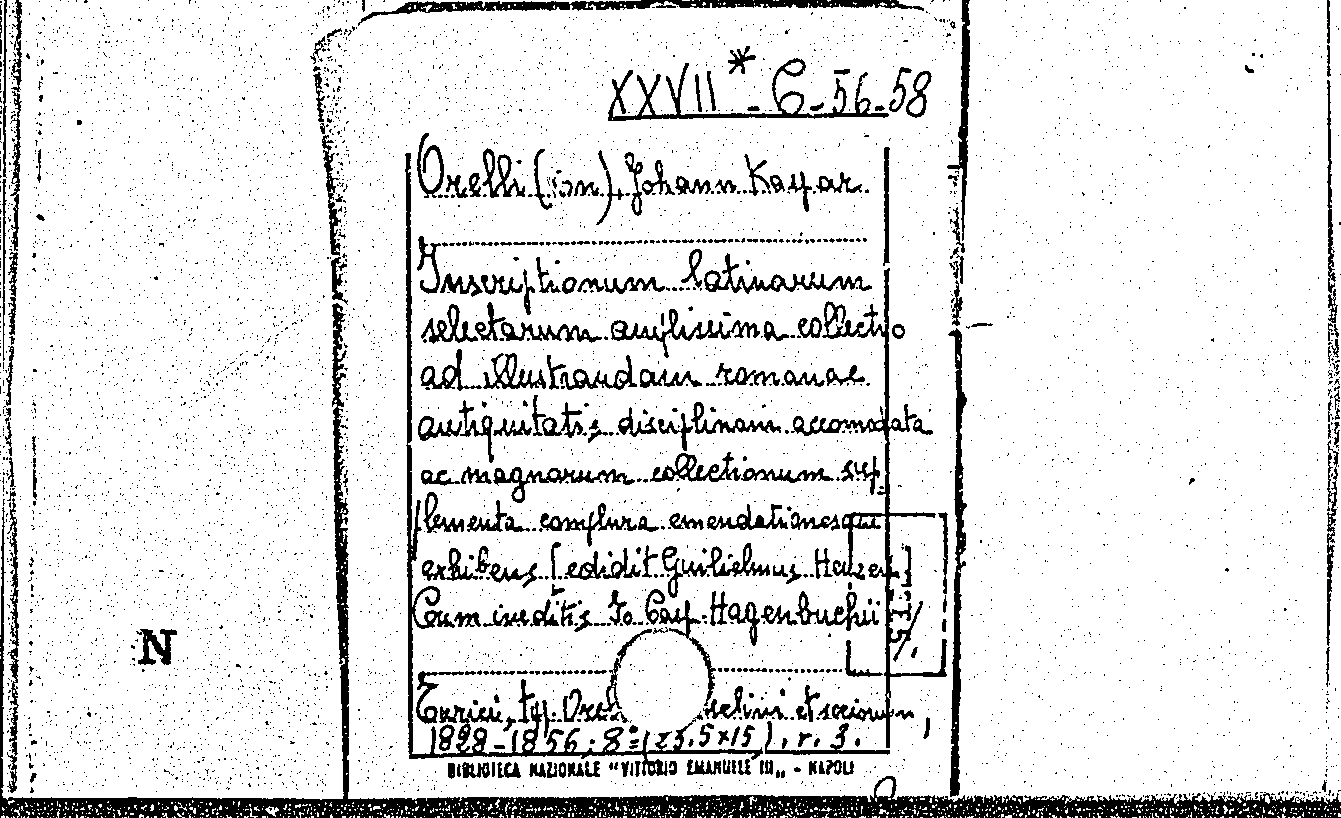 XXVII * - C - 56-58
Orelli (von), Johann Kaspar
Inscriptionum latinarum
selectarum amplissima collectio
ad illustrandam romanae
antiquitatis disciplinam accomodata
ac magnarum collectionum sup
plementa complura emendationesque
exhibens [edidit Guilielmus Henzen]
Cum ineditis Jo Casp. Hagenbuchii
N
Turici, typ. Orel selini et sociorum,
1828-1856; 8º (23.5x15), v. 3.
BIBLIOTECA NAZIONALE "VITTORIO EMANUELE III" - NAPOLI